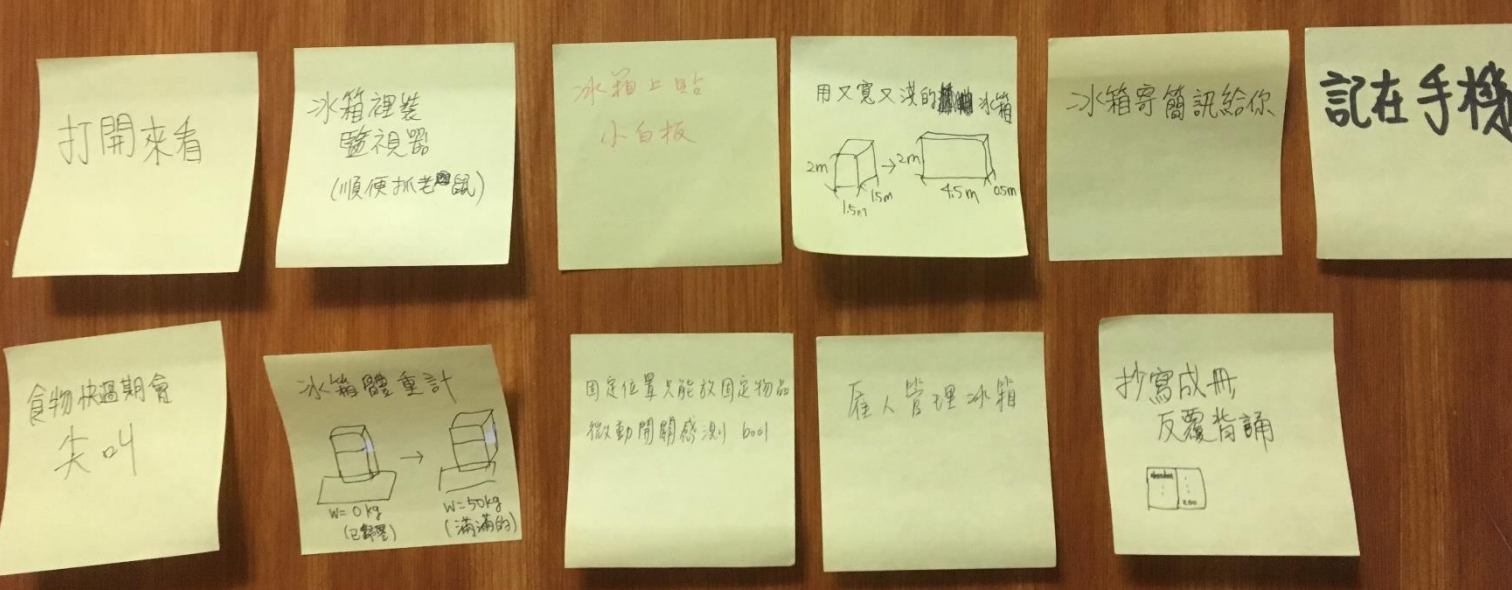 打開來看
冰箱裡裝
監視器
(順便抓老鼠)
冰箱上貼
小白板
用又寬又淺的冰箱
2m
1.5m
1.5m
2m
4.5m
0.5m
冰箱寄簡訊給你
記在手機
食物快過期會
尖叫
冰箱體重計
W=0kg
(已歸零)
W=50kg
(滿滿的)
固定位置只能放固定物品
微動開關感測 bool
雇人管理冰箱
抄寫成冊,
反覆背誦